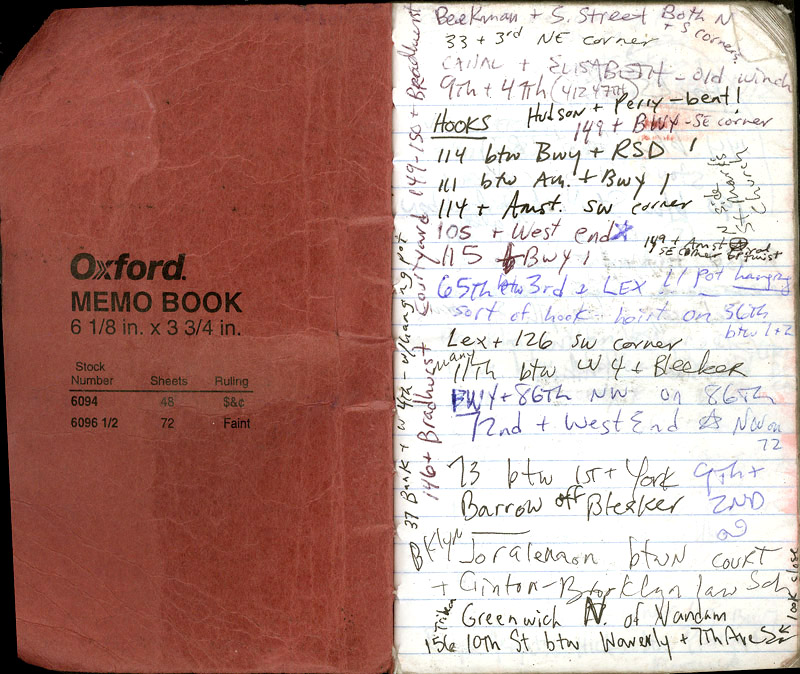 Oxford
MEMO BOOK
6 1/8 in. x 3 3/4 in.
Stock
Number Sheets Ruling
6094 48 $&¢
6096 1/2 72 Faint
Beekman + S. Street Both N
+ S corners
33 + 3rd NE corner
CANAL + ELISABETH - old winch
9th + 47th (412 47th)
Hudson + Perry - bent!
HOOKS
149 + BWY - SE corner
114 btw Bwy + RSD 1
111 btw Am. + Bwy 1
114 + Amst. SW corner
N side
St Marks
Church
105 + West end X
149 + Amst
SE corner
115 + Bwy 1
65th btw 3rd + LEX 11 pot hanging
sort of hook - hoist on 56th
btw 1+2
Lex + 126 SW corner
many
11th btw W4 + Bleeker
BWY + 86th NW on 86th
72nd + West End NW on
72
73 btw 1st + York
9th +
2ND
Barrow off Bleeker
Bklyn
Joralemon btwn court
+ Clinton - Brooklyn law Sch
look close
Greenwich N. of Vandam
156 10th St btw Waverly + 7th Ave S
37 Bank + W 4th - w/hanging pot
146 + Bradhurst courtyard 149-150 + Bradhurst